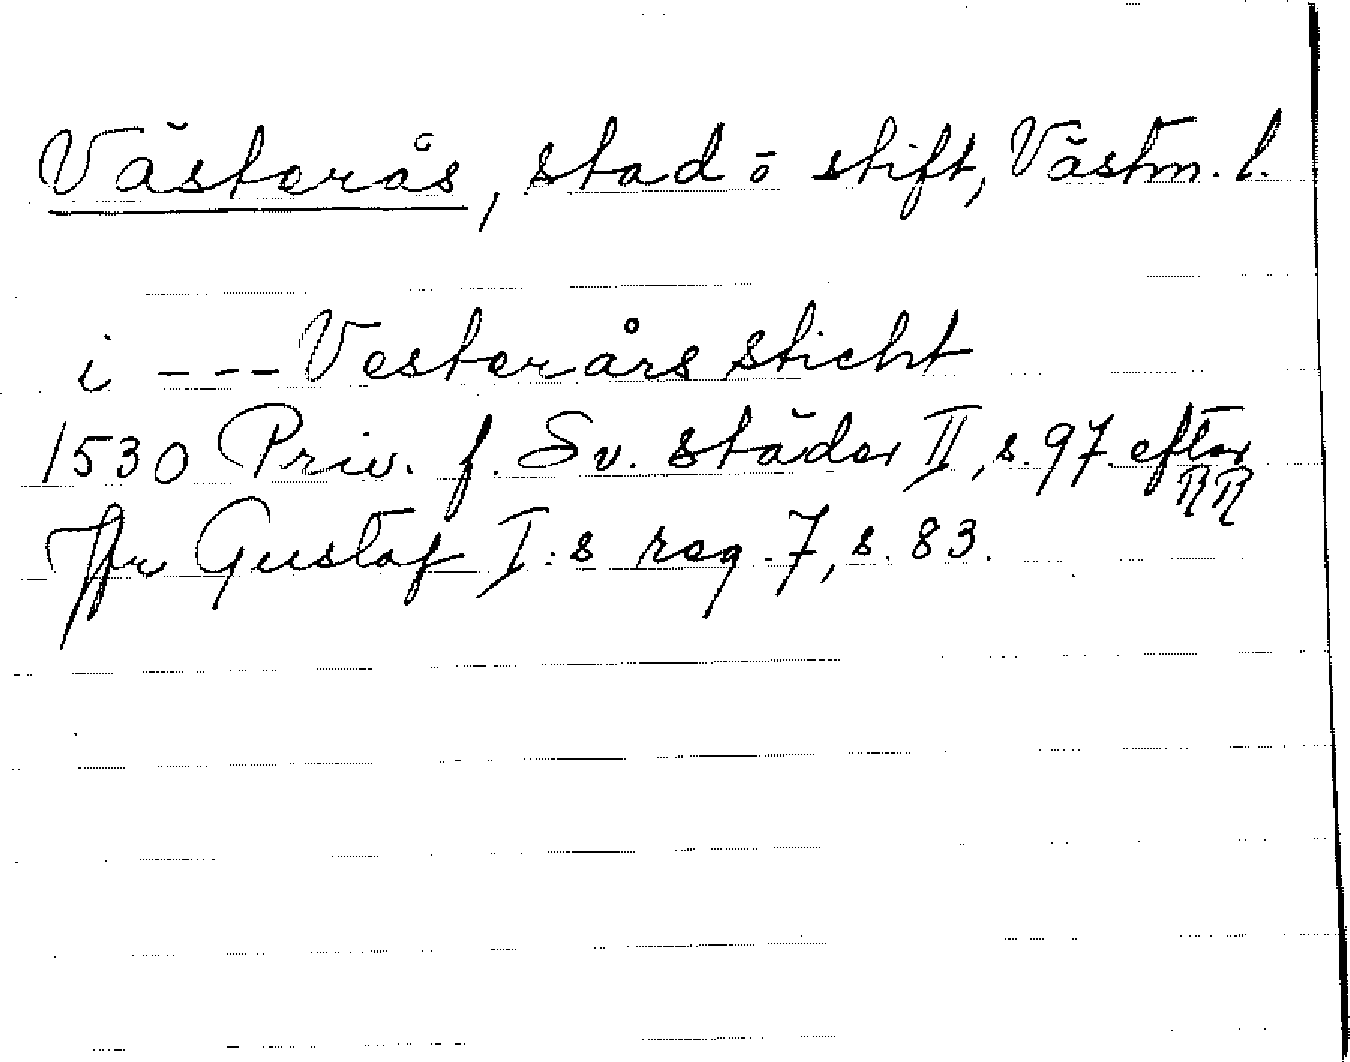 Västerås, stad o stift, Västm. l.
i --- Vesterårs sticht
1530 Priv. f. Sv. städer II, s. 97 efter
RR
Jfr Gustaf I:s reg. 7, s. 83.